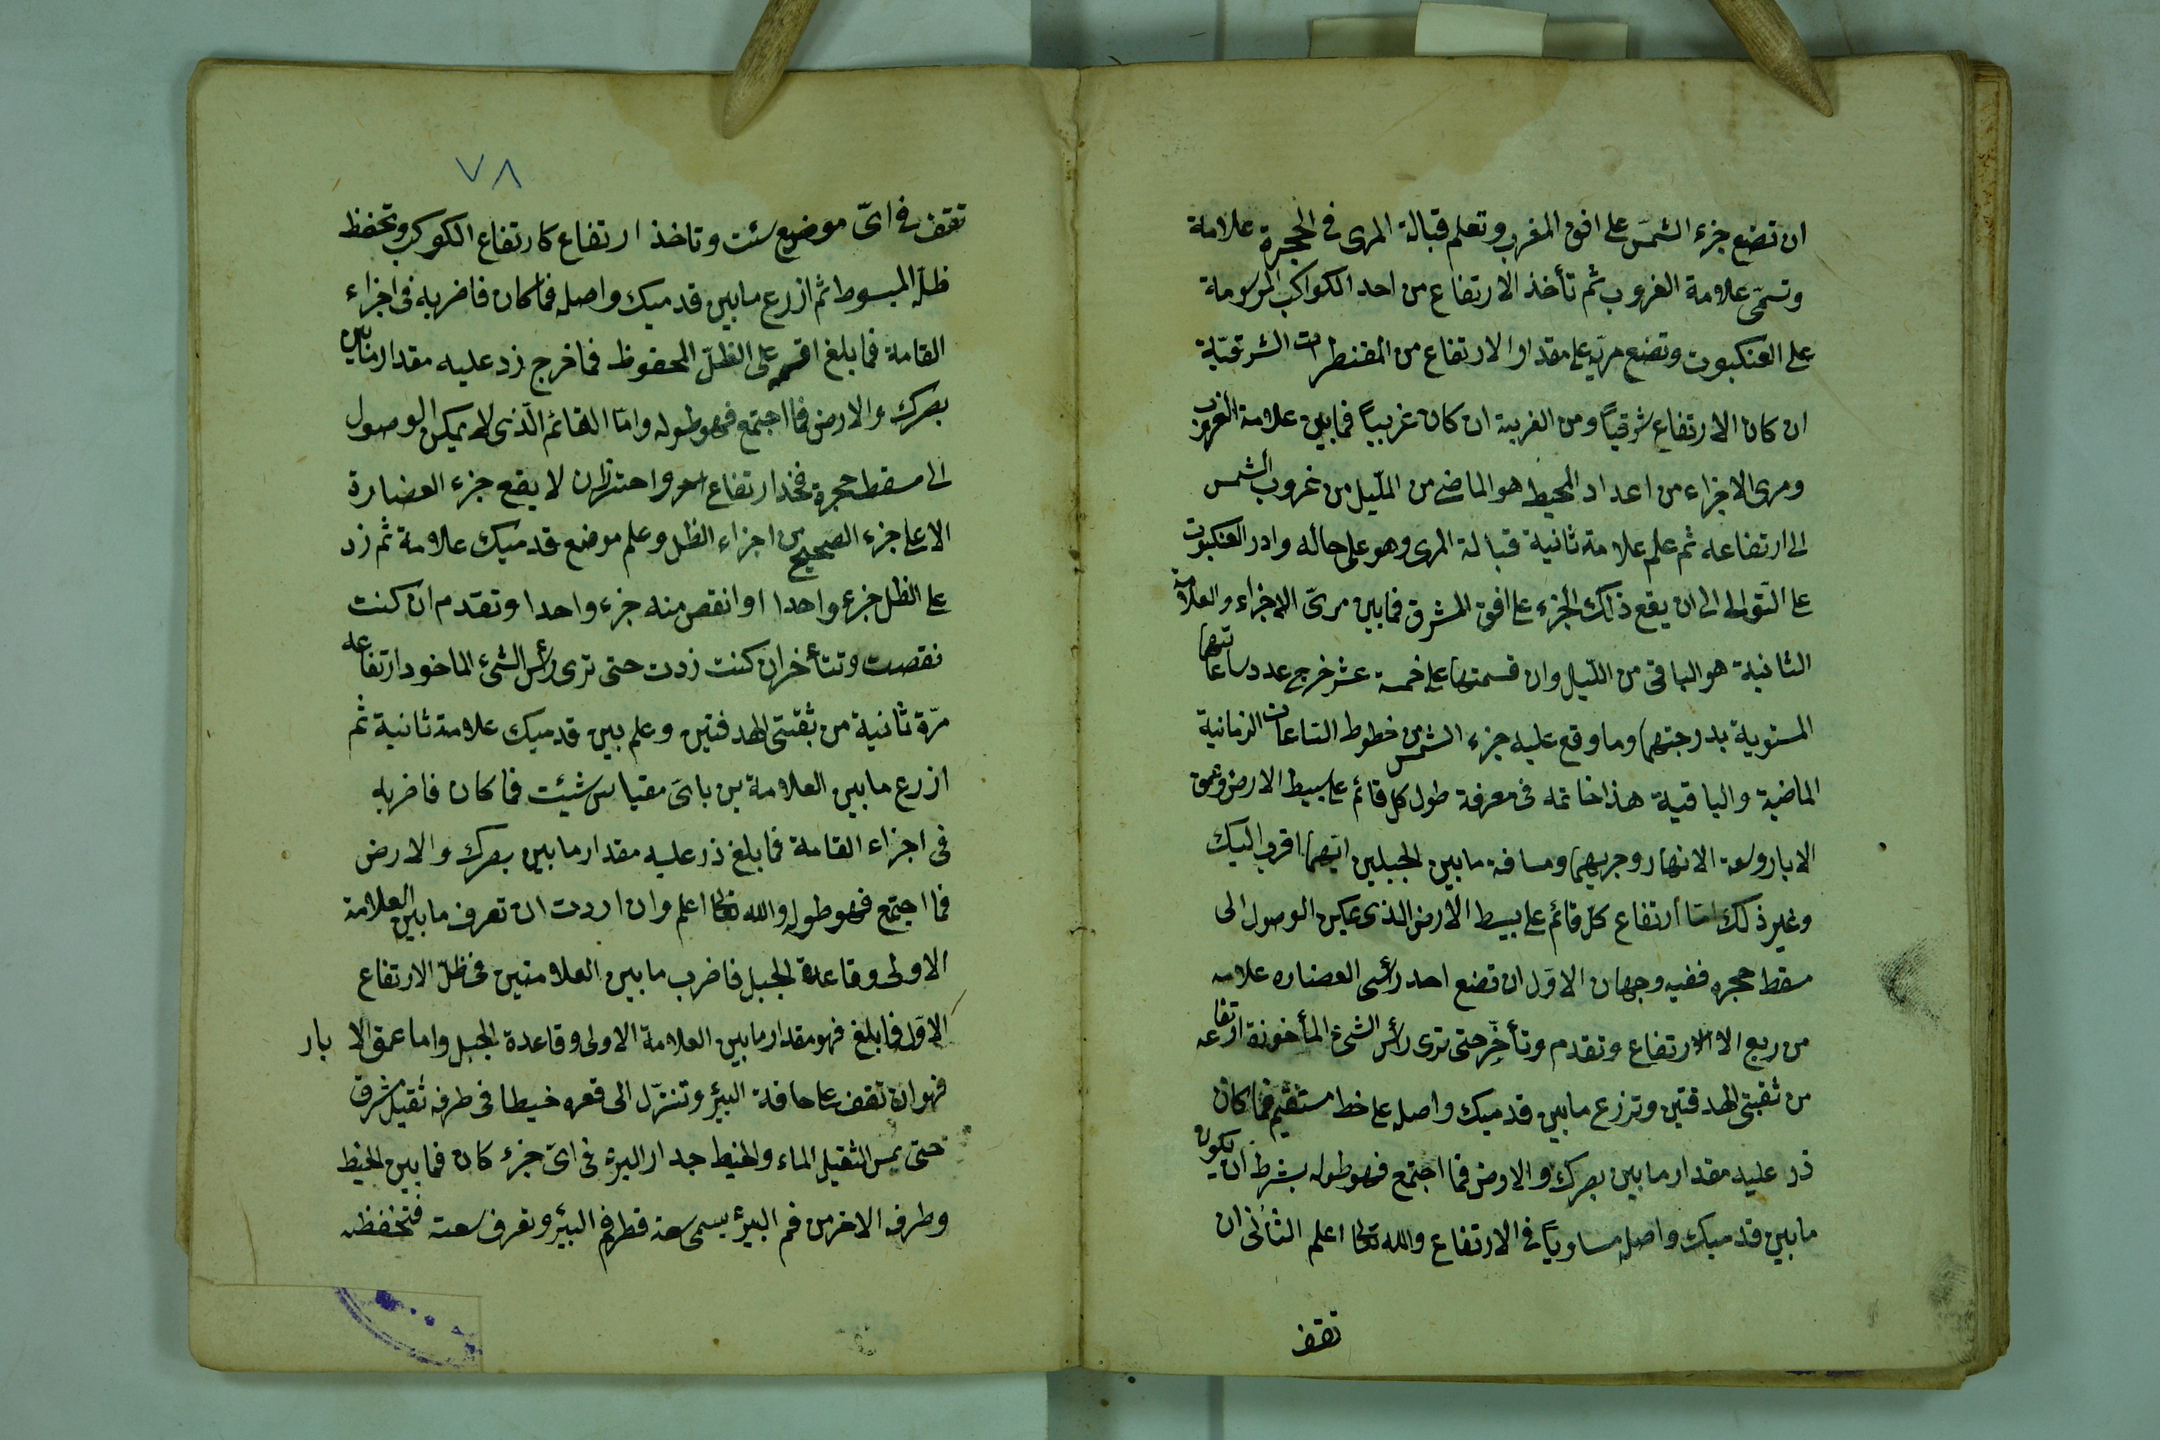 ان تضع جزء الشمس على افق المغرب وتعلم قبالة المرى فى الحجرة علامة
وتسمّى علامة الغروب ثم تأخذ الارتفاع من احد الكواكب المرسومة
على العنكبوت وتضع مريّه على مقدار الارتفاع من المقنطرات الشرقيّة
ان كان الارتفاع شرقياً ومن الغربية ان كان غربياً فمابين علامة الغروب
ومرى الاجزاء من اعداد المحيط هو الماضى من الليّل من غروب الشمس
الى ارتفاعه ثم علم علامة ثانية قبالة المرى وهو على حاله وادر العنكبوت
على التّوالى الى ان يقع ذلك الجزء على افق المشرق فمابين مرىّ الاجزاء والعلامة
الثانية هو الباقى من اللّيل وان قسمتها على خمسة عشر خرج عدد ساعاتها
المستوية بدرجتهما وما وقع عليه جزء الشمس من خطوط السّاعات الزمانية
الماضية والباقية هذا خاتمه فى معرفة طول كل قائم على بسيط الارض وعمق
الابار وسعة الانهار وجريها ومسافة مابين الجبلين ايّهما اقرب اليك
وغير ذلك امّا ارتفاع كلّ قائم على بسيط الارض الذى يمكن الوصول الى
مسقط حجره ففيه وجهان الاوّل ان تضع احد رأسى العضاده علامه
من ربع الا الارتفاع وتقدم وتأخّر حتى ترى رأس الشئ المأخوذة ارتفاعه
من ثقبتى الهدفتين وتزرع مابين قدميك واصله على خط مستقيم فما كان
ذد عليه مقدار مابين بصرك والارض فما اجتمع فهو طوله بشرط ان يكون
مابين قدميك واصله مساوياً فى الارتفاع والله تعالى اعلم الثانى ان
تقف
٧٨
تقف فى اىّ موضع سئت وتاخذ ارتفاع كارتفاع الكوكب وتحفظ
ظلّه المبسوط ثم ازرع مابين قدميك واصله فما كان فاضربه فى اجزاء
القامة فما بلغ اقسمه على الظلّ المحفوظ فما خرج زد عليه مقدار مابين
بصرك والارض فما اجتمع فهو طوله وامّا القائم الّذى لا يمكن الوصول
الى مسقط حجرة فخذ ارتفاع واحترز ان لا يقع جزء العضارة
الا على جزء الصحيح من اجزاء الظل وعلم موضع قدميك علامة ثم زد
على الظل جزء واحدا او انقص منه جزء واحدا وتقدم ان كنت
نقصت وتتأخر ان كنت زدت حتى ترى رأس الشئ الماخود ارتفاعه
مرّة ثانية من ثقبتى الهدفتين وعلم بين قدميك علامة ثانية ثم
ازرع مابين العلامة ين باىّ مقياس شيئت فما كان فاضربه
فى اجزاء القامة فما بلغ ذد عليه مقدار مابين بصرك والارض
فما اجتمع فهو طوله والله تعالى اعلم وان اردت ان تعرف مابين العلامة
الاولى وقاعدة الجبل فاضرب مابين العلامتين فى ظلّ الارتفاع
الاوّل فما بلغ فهو مقدار مابين العلامة الاولى وقاعدة الجبل واما عمق الا بار
فهو ان تقف على حافة البئر وتنزّل الى قعره خيطا فى طرفه ثقيل مشرق
حتى يمس الثقيل الماء والخيط جدار البئر فى اىّ جزء كان فما بين الخيط
وطرفه الاخر من فم البئر يسمى سعة قطر فم البئر وتعرف سعته فتحفظه